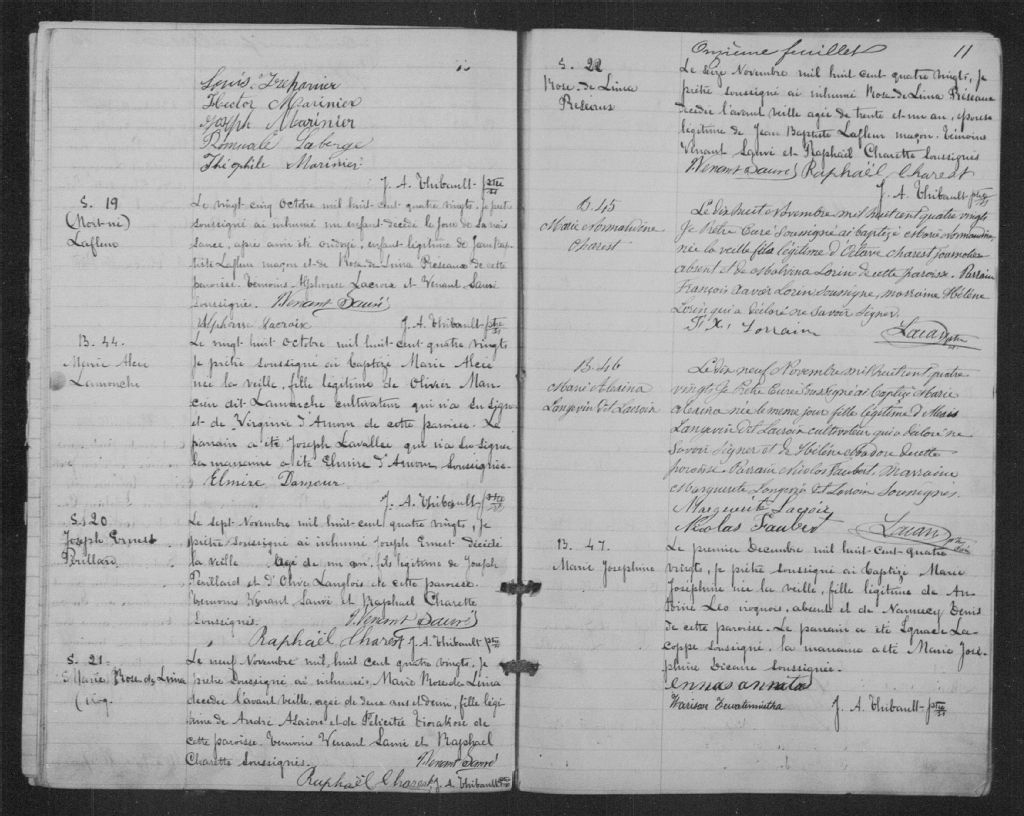 Louis
Hector Marinier
Joseph Marinier
Romuald Laberge
Théophile Marinier
J. A. Thibault ptre
S. 19
(Mort-né)
Lafleur
Le vingt cinq Octobre mil huit cent quatre vingts, je prêtre
soussigné ai inhumé un enfant decédé le jour de sa nais
sance, après avoir été ondoyé, enfant légitime de Jean Bap
tiste Lafleur maçon et de Rose de Lima Réseaux de cette
paroisse. Témoins Alphonse Lacroix et Venant Sauvé
soussignés. Venant Sauvé
Alphonse Lacroix J. A. Thibault ptre
B. 44.
Marie
Lamouche
Le vingt huit Octobre mil huit-cent quatre vingts
je prêtre soussigné ai baptizé Marie
née la veille, fille légitime de Olivier
dit Lamouche cultivateur qui n'a su signer
et de Virginie d'Amour de cette paroisse. Le
parrain a été Joseph Lavallée qui n'a su signer
la marraine a été Elmire d'Amour soussignée.
Elmire Damour
J. A. Thibault ptre
S. 20
Joseph Ernest
Perillard
Le sept Novembre mil huit-cent quatre vingts, je
prêtre soussigné ai inhumé Joseph Ernest décédé
la veille agé de un an, fils légitime de Joseph
Perillard et d'Olive Langlois de cette paroisse.
Temoins Venant Sauvé et Raphael Charette
soussignés. Venant Sauvé
Raphaël Charest J. A. Thibault ptre
S. 21.
Marie Rose de Lima
Le neuf Novembre mil huit cent quatre vingts, je
prêtre soussigné ai inhumé Marie Rose de Lima
decedée l'avant veille, agée de deux ans et demi, fille légi
time de André et de Felicité de
cette paroisse. Temoins Venant Sauvé et Raphael
Charette soussignés. Venant Sauvé
Raphaël Charest J. A. Thibault ptre
Onzième feuillet 11
S. 22
Rose de Lima
Réseaux
Le seize Novembre mil huit cent quatre vingts, je
prêtre soussigné ai inhumé Rose de Lima Réseaux
decedée l'avant veille agée de trente et un an, épouse
légitime de Jean Baptiste Lafleur maçon. Témoins
Venant Sauvé et Raphaël Charette soussignés
Venant Sauvé Raphaël Charest
J. A. Thibault ptre
B. 45
Marie Normandine
Charest
Le dix huit Novembre mil huit cent quatre vingt
Je Prêtre Curé Soussigné ai baptizé Marie Normandine,
née la veille fille légitime d'Octave Charest journalier
absent et de Malvina Lorin de cette paroisse. Parrain
François Xavier Lorin Soussigné, marraine Hélène
Lorin qui a déclaré ne savoir signer.
F. X. Lorrain
B. 46
Marie
Langevin dit Lacroix
Le dix neuf Novembre mil huit cent quatre
vingt, Je Prêtre Curé Soussigné ai baptizé Marie
née le meme jour fille légitime d'
Langevin dit Lacroix cultivateur qui a déclaré ne
savoir signer et de Hélène de cette
paroisse. Parrain Nicolas Faubert. Marraine
Marguerite Langevin dit Lacroix Soussignés.
Marguerite Lacroix
Nicolas Faubert
B. 47.
Marie Josephine
Le premier Decembre mil huit-cent quatre
vingts, je prêtre soussigné ai baptizé Marie
Josephine née la veille, fille légitime de An
toine Léo iroquois, absent et de Denis
de cette paroisse. Le parrain a été Ignace La
coppe soussigné, la marraine a été Marie José
phine Dicaire soussignée.
ennas annata
J. A. Thibault ptre